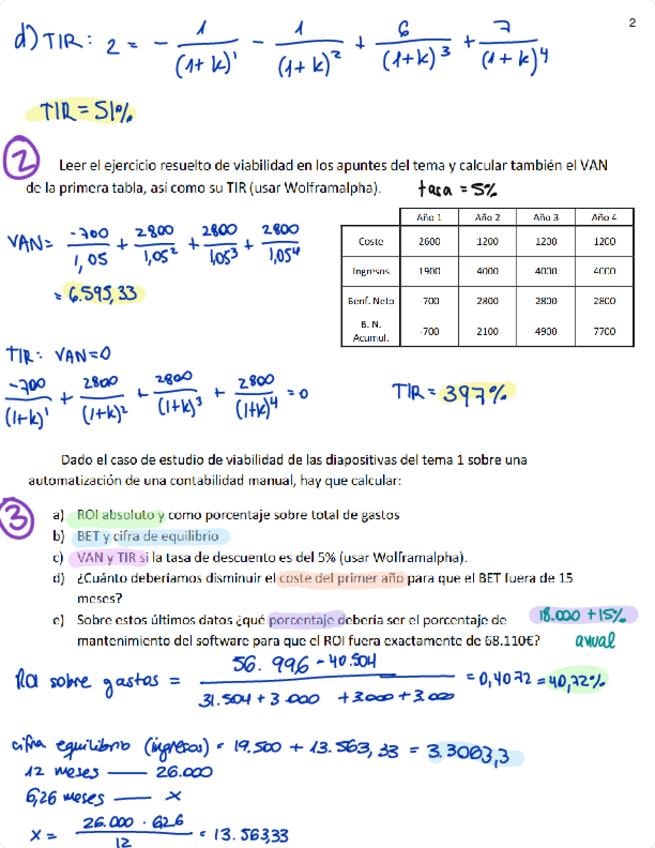 2
d) TIR: 2 = - 1/(1+k)¹ - 1/(1+k)² + 6/(1+k)³ + 7/(1+k)⁴
TIR = 51%
2 Leer el ejercicio resuelto de viabilidad en los apuntes del tema y calcular también el VAN
de la primera tabla, así como su TIR (usar Wolframalpha). tasa = 5%
VAN = -700/1,05 + 2800/1,05² + 2800/1,05³ + 2800/1,05⁴
= 6.595,33
Año 1 Año 2 Año 3 Año 4
Coste 2600 1200 1200 1200
Ingresos 1900 4000 4000 4000
Benf. Neto 700 2800 2800 2800
B. N. Acumul. -700 2100 4900 7700
TIR: VAN=0
-700/(1+k)¹ + 2800/(1+k)² + 2800/(1+k)³ + 2800/(1+k)⁴ = 0
TIR = 397%
Dado el caso de estudio de viabilidad de las diapositivas del tema 1 sobre una
automatización de una contabilidad manual, hay que calcular:
3
a) ROI absoluto y como porcentaje sobre total de gastos
b) BET y cifra de equilibrio
c) VAN y TIR si la tasa de descuento es del 5% (usar Wolframalpha).
d) ¿Cuánto deberíamos disminuir el coste del primer año para que el BET fuera de 15
meses?
e) Sobre estos últimos datos ¿qué porcentaje debería ser el porcentaje de
mantenimiento del software para que el ROI fuera exactamente de 68.110€?
18.000 + 15%
anual
ROI sobre gastos = 56.996 - 40.504 / 31.504 + 3.000 + 3.000 + 3.000 = 0,4072 = 40,72%
cifra equilibrio (ingresos) = 19.500 + 13.563,33 = 3.3063,3
12 meses — 26.000
6,26 meses — x
x = 26.000 · 6,26 / 12 = 13.563,33